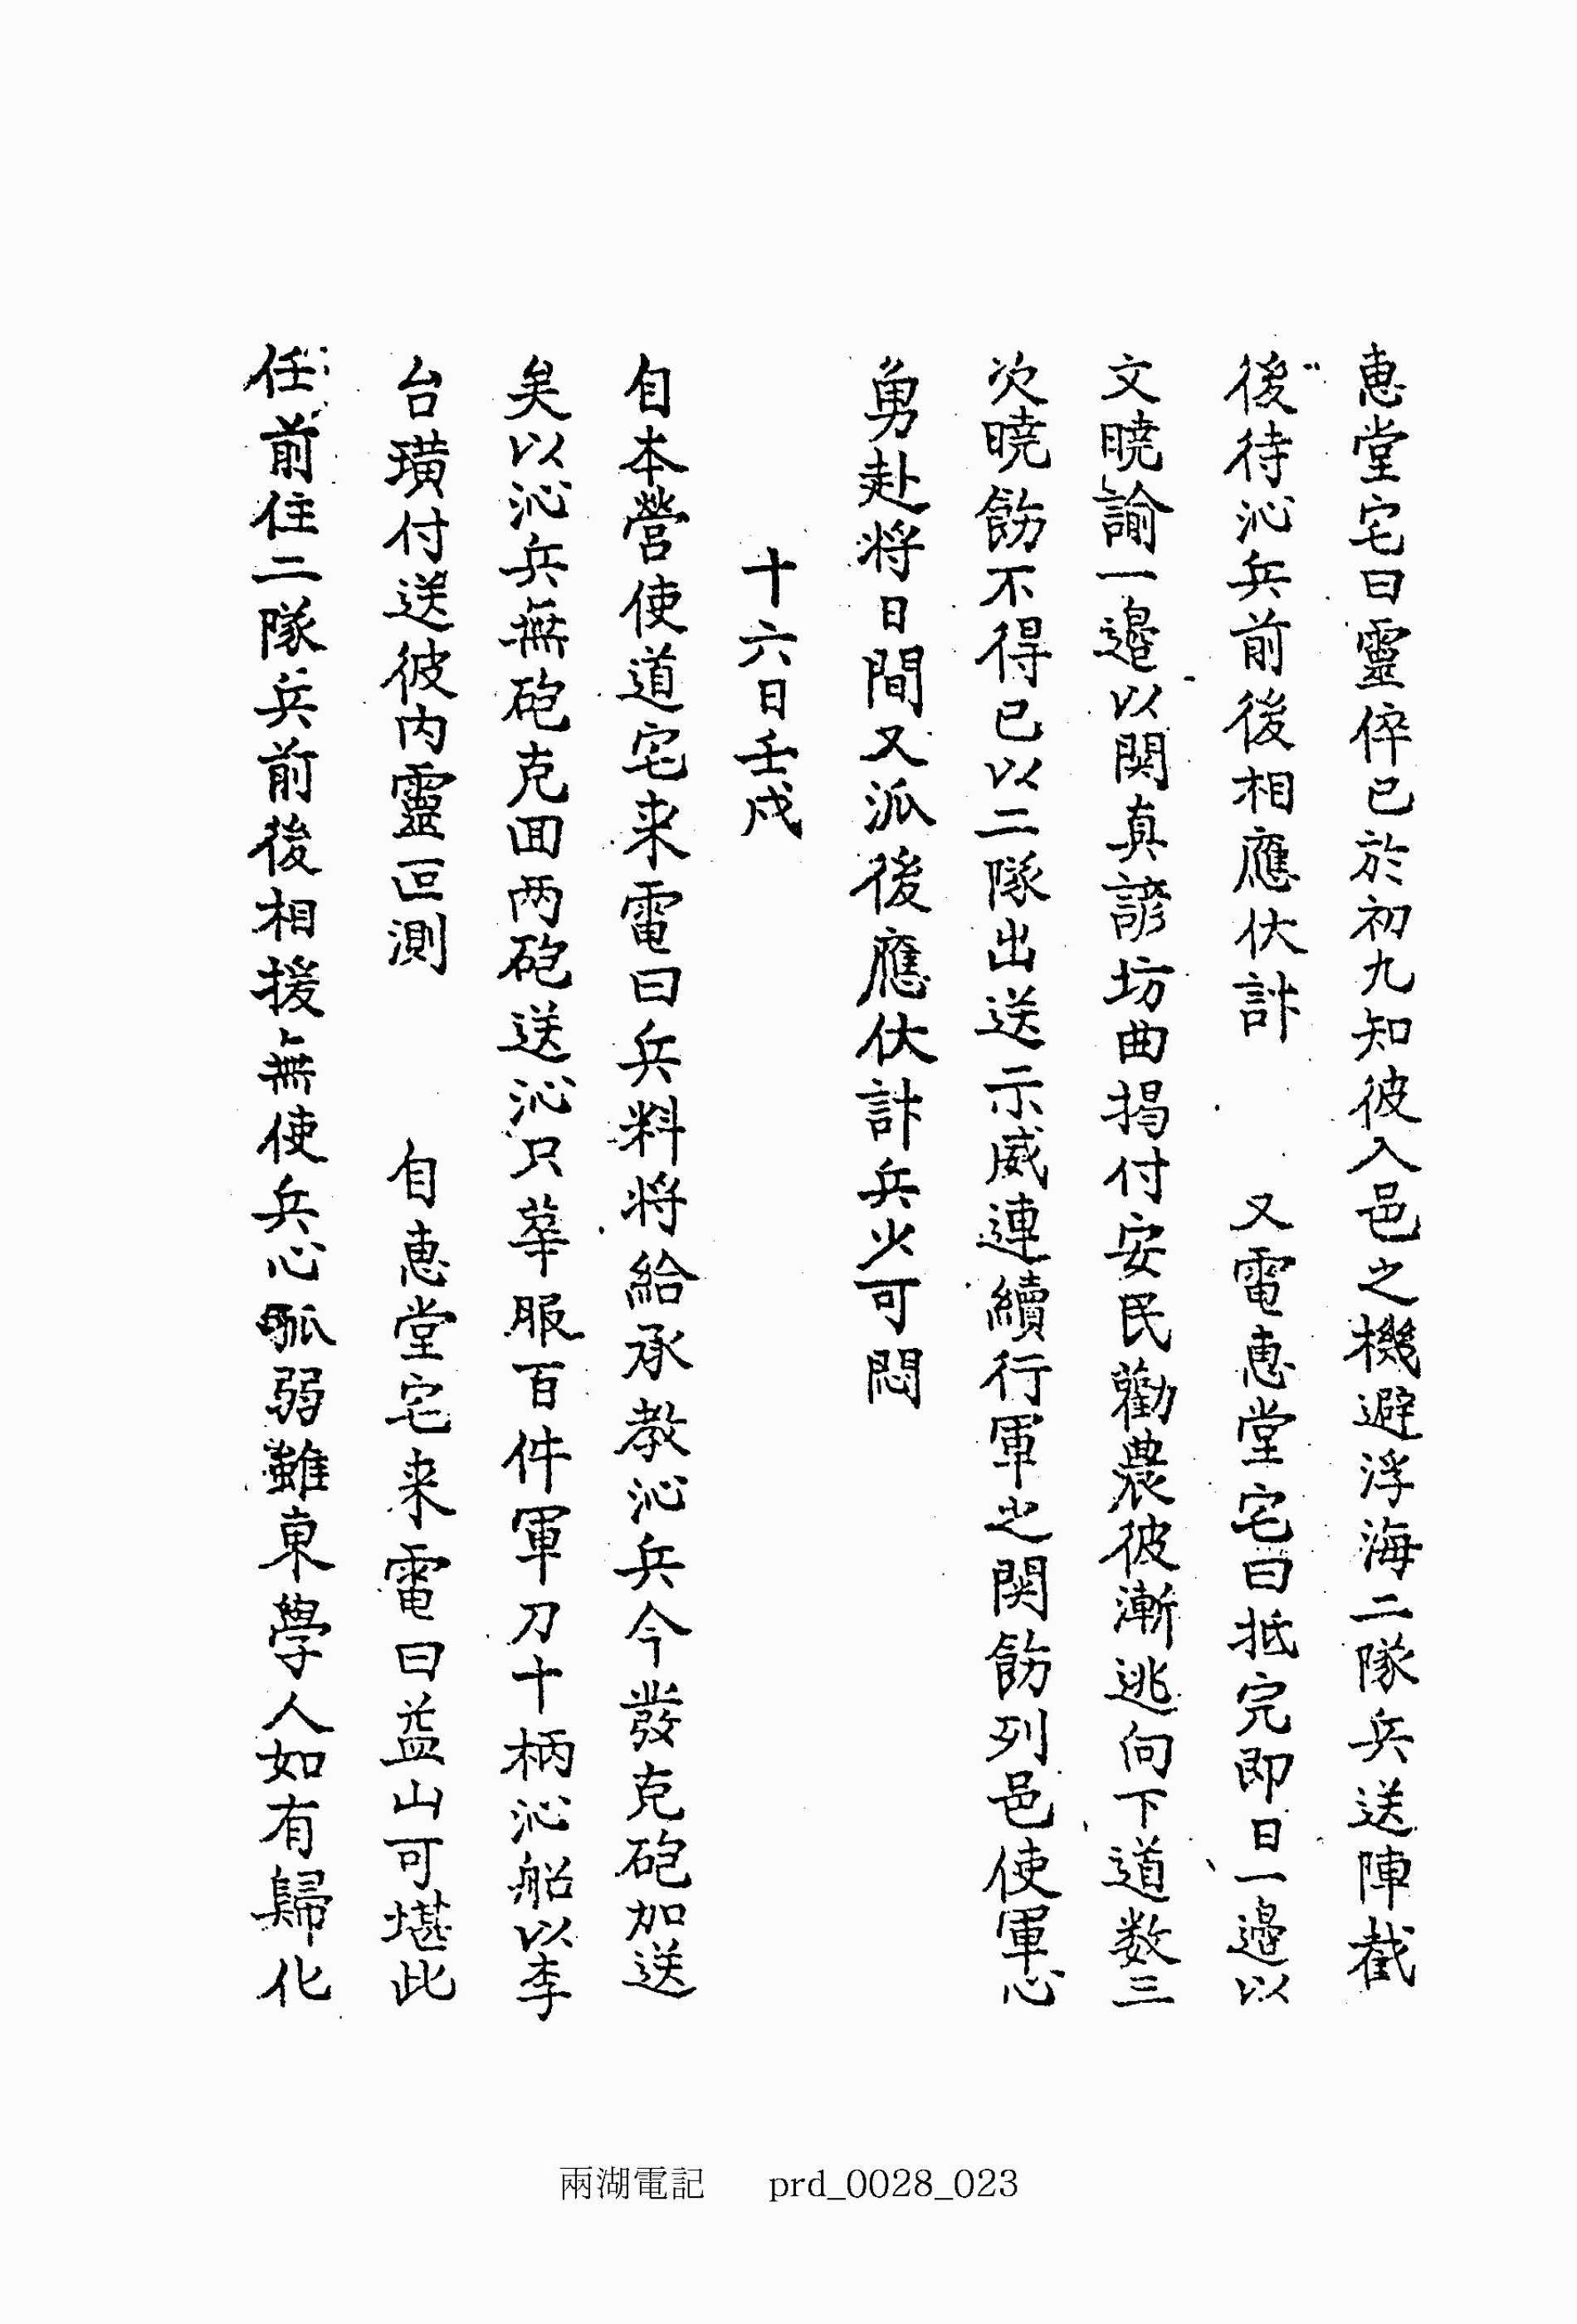 惠堂宅曰靈倅已於初九知彼入邑之機避浮海二隊兵送陣截
後待沁兵前後相應伏計 又電惠堂宅曰抵完即日一邊以
文曉諭一邊以関真諺坊曲揭付安民勸農彼漸逃向下道数三
次曉飭不得已以二隊出送示威連續行軍之関飭列邑使軍心
勇赴將日間又派後應伏計兵火可悶
十六日壬戌
自本營使道宅来電曰兵料將給承敎沁兵今發克砲加送
矣以沁兵無砲克回两砲送沁只華服百件軍刀十柄沁船以李
台璜付送彼内靈叵測 自惠堂宅来電曰益山可堪此
任前住二隊兵前後相援無使兵心孤弱雖東學人如有歸化
兩湖電記 prd_0028_023